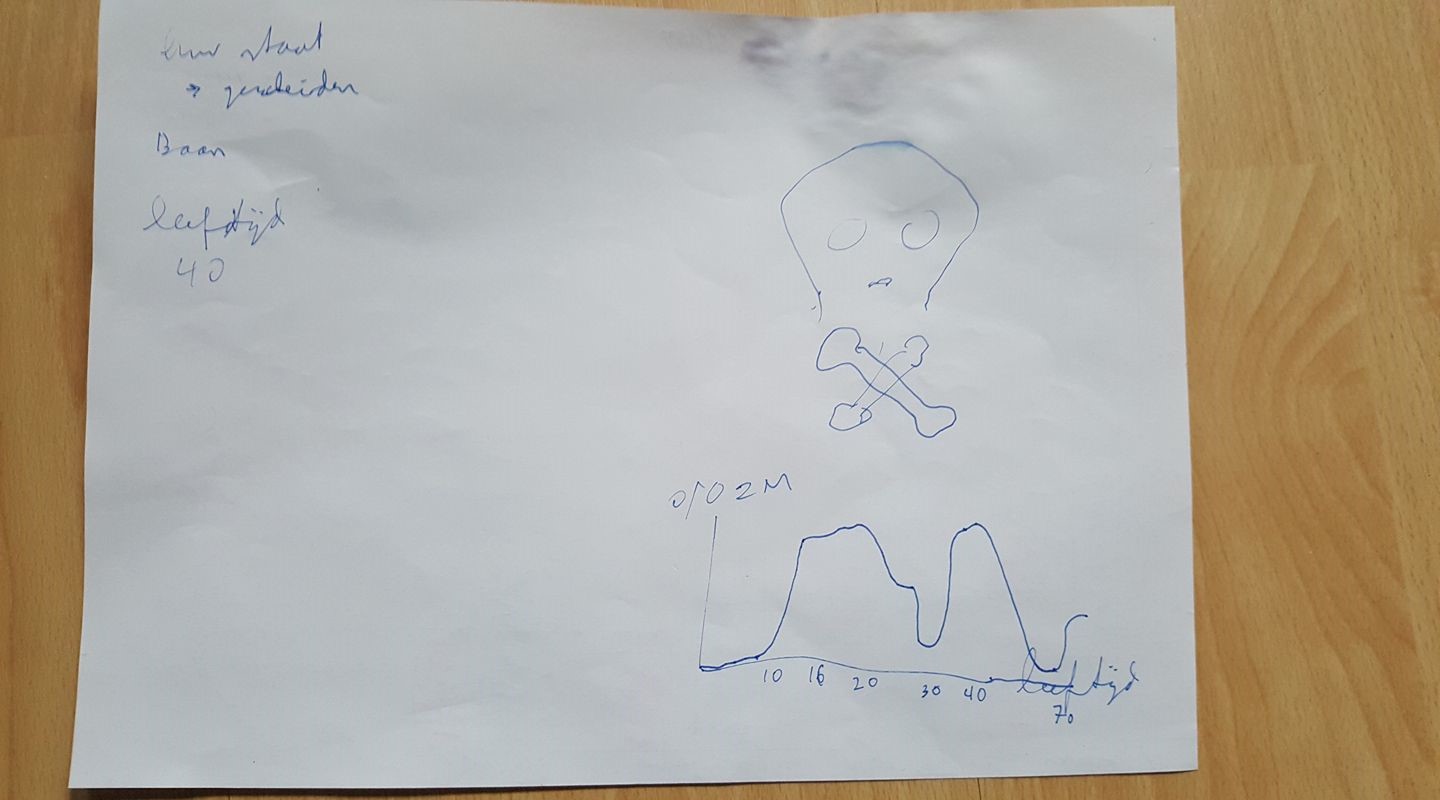 staat
→ gescheiden
Baan
leeftijd
40
0/0 ZM
10 16 20 30 40 leeftijd
70